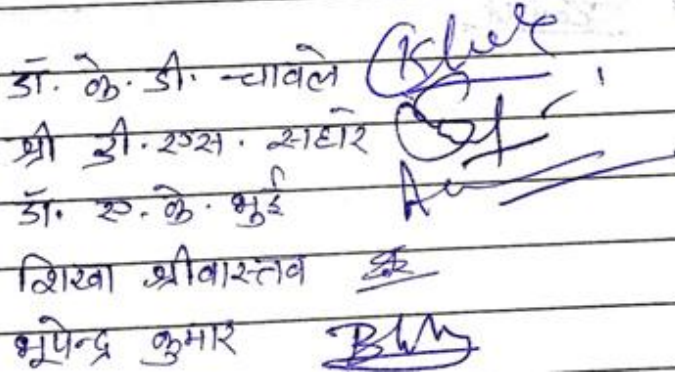 डॉ. के. डी. चावले
श्री डी. एस. सहारे
डॉ. ए. के. भुई
शिखा श्रीवास्तव
भूपेन्द्र कुमार